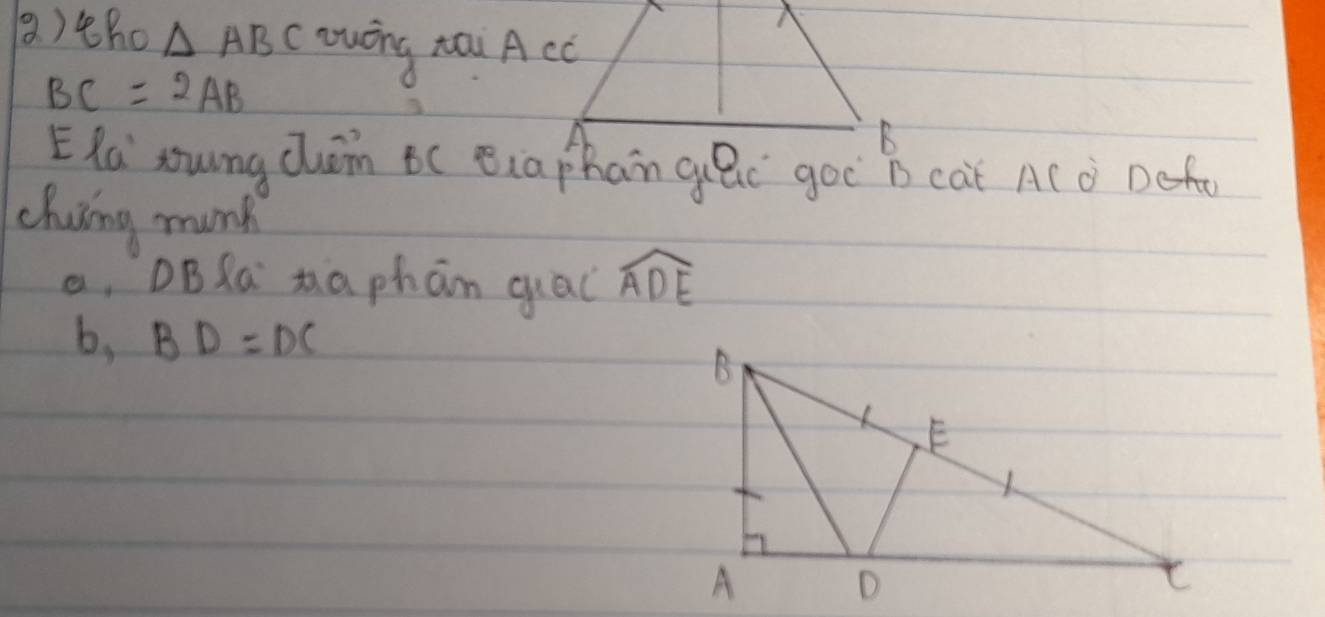 2) Cho Δ ABC vuông tại A có
BC = 2AB
E là trung điểm BC tia phân giác góc B cắt AC ở D
chứng minh
a, DB là tia phân giác ADE
b, BD = DC
A
B
B
E
A
D
C